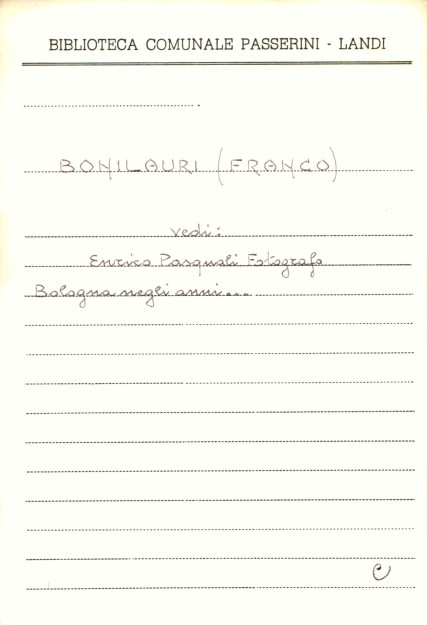 BIBLIOTECA COMUNALE PASSERINI - LANDI
BONILAURI (FRANCO)
vedi:
Enrico Pasquali Fotografo
Bologna negli anni...
C